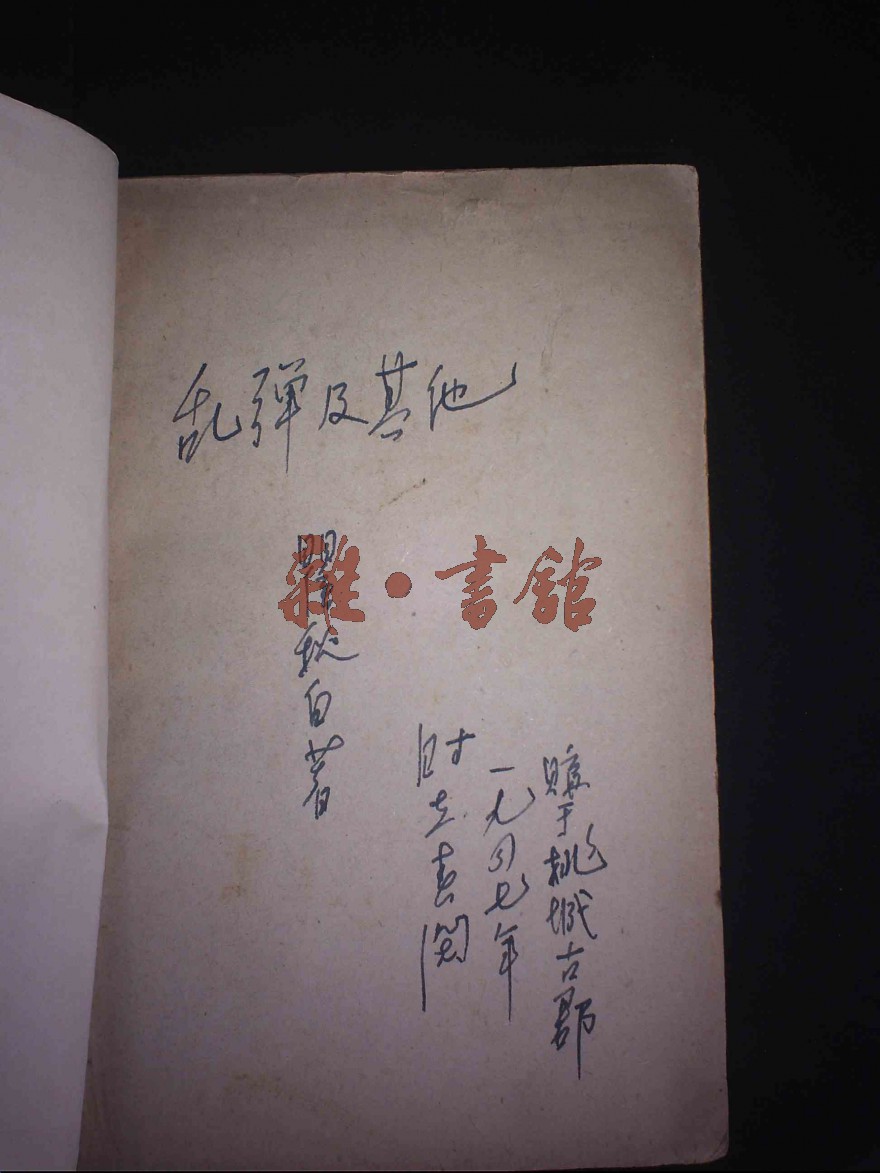 乱弹及其他
瞿秋白著
雜·書館
购于桃城古郡
一九四七年
时在春阁